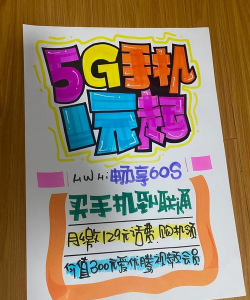 5G手机
1元起
HWHi畅享60S
买手机到联通
月缴129元话费 购机领
价值300元爱优腾视频会员